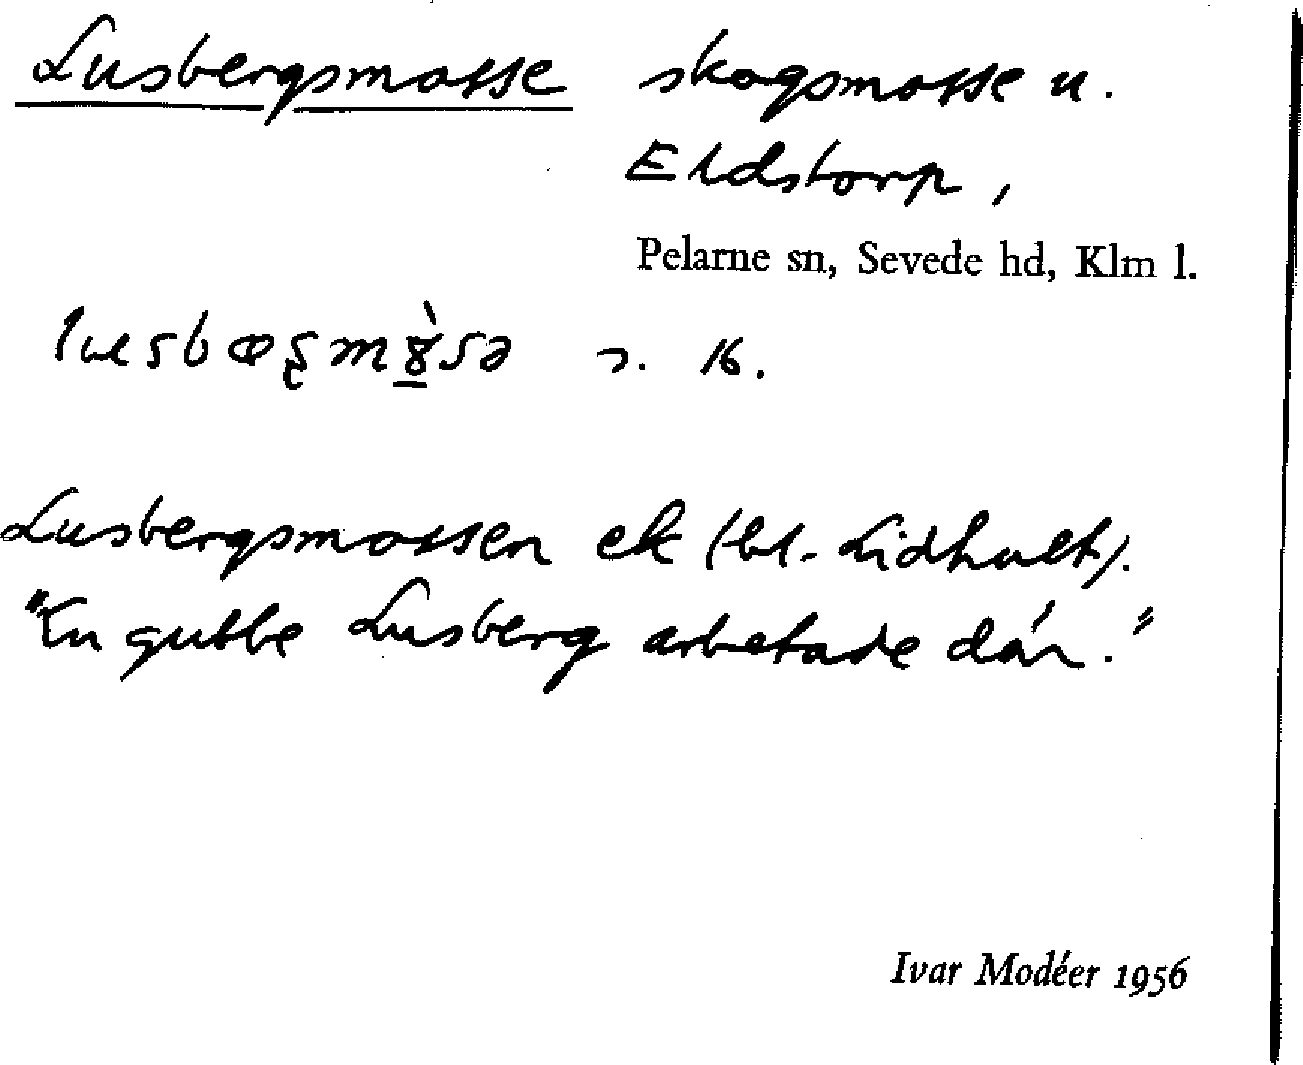 Lusbergsmosse skogsmosse u.
Eldstorp,
Pelarne sn, Sevede hd, Klm l.
s. 16.
Lusbergsmossen ek (bl. Lidhult).
"En gubbe Lusberg arbetade där."
Ivar Modéer 1956